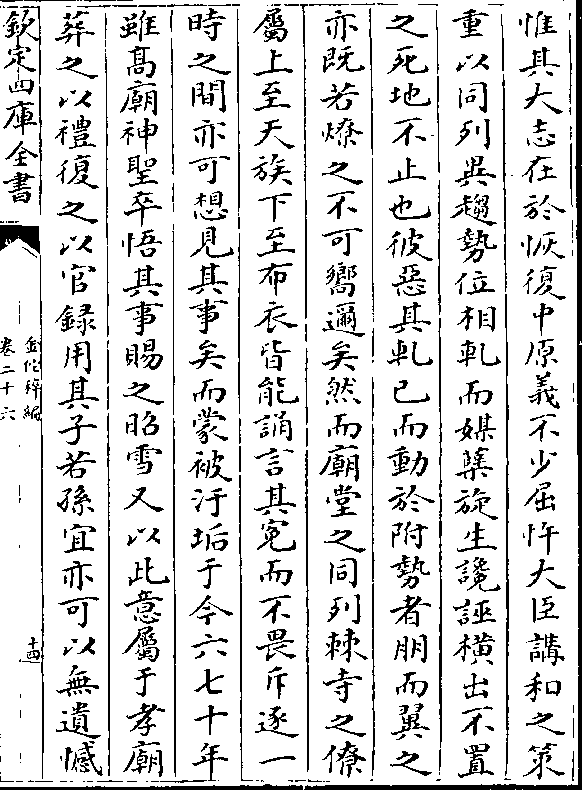 惟其大志在於恢復中原義不少屈忤大臣講和之策
重以同列異趨勢位相軋而媒櫱旋生讒誣横出不置
之死地不止也彼惡其軋已而動於附勢者朋而翼之
亦既若燎之不可嚮邇矣然而廟堂之同列棘寺之僚
屬上至天族下至布衣皆能誦言其寃而不畏斥逐一
時之間亦可想見其事矣而蒙被汙垢于今六七十年
雖髙廟神聖卒悟其事賜之昭雪又以此意屬于孝廟
葬之以禮復之以官録用其子若孫宜亦可以無遺憾
欽定四庫全書
金佗稡編
卷二十六
十四